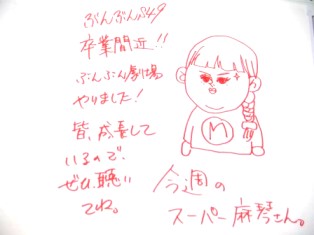 卒業間近!!
ぶんぶん劇場
やりました!
皆、成長して
いるので、
ぜひ、聴い
てね。
M
今週の
スーパー麻琴さん。